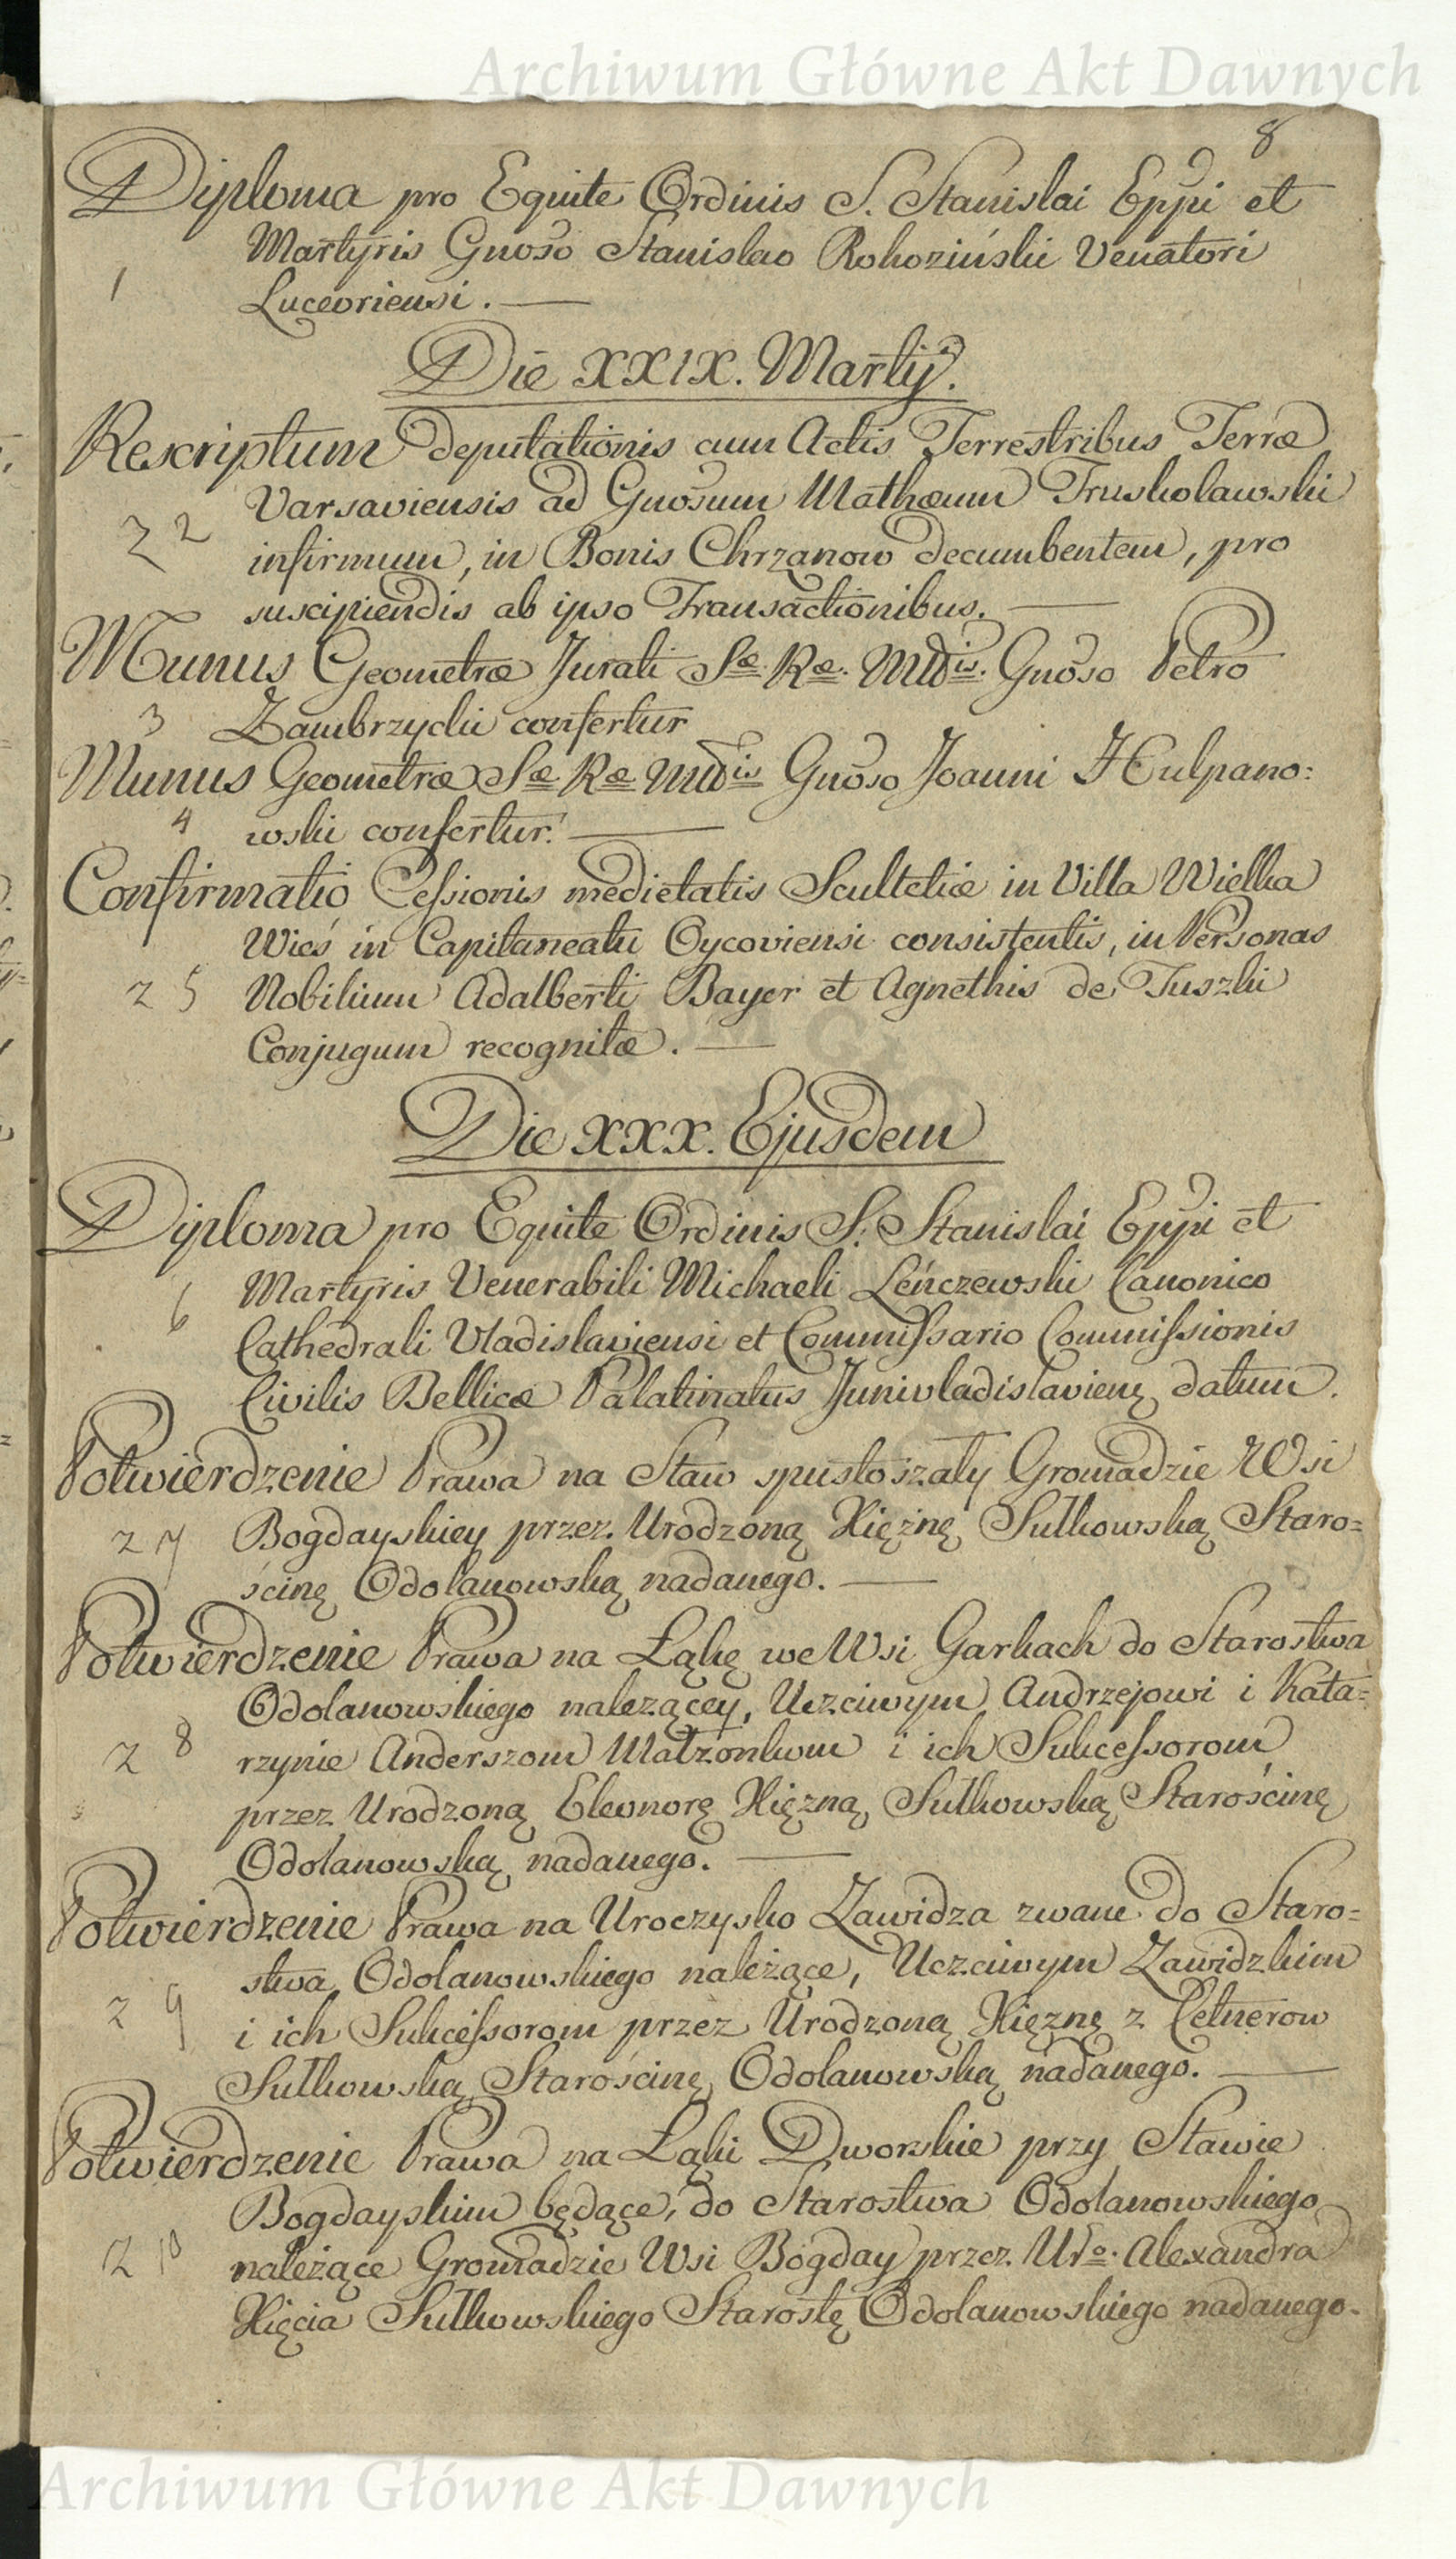 Archiwum Główne Akt Dawnych
8
Diploma pro Equite Ordinis S. Stanislai Eppi et
Martyris Gnoso Stanislao Rohoziński Venatori
1 Luceoriensi.
Die XXIX. Martij.
Rescriptum deputationis cum Actis Terrestribus Terræ
Varsaviensis ad Gnosum Mathæum Truskolawski
Z 2 infirmum, in Bonis Chrzanow decumbentem, pro
suscipiendis ab ipso Transactionibus.
Munus Geometræ Jurati Sæ. Ræ. Mtis. Gnoso Petro
3 Zambrzycki confertur
Munus Geometræ Sæ Ræ Mtis Gnoso Joanni Hulpano:
4 wski confertur.
Confirmatio Cessionis medietatis Scultetiæ in Villa Wielka
Wieś in Capitaneatu Oycoviensi consistentis, in Personas
z 5 Nobilium Adalberti Bayer et Agnethis de Tuszki
Conjugum recognitæ.
Die XXX. Ejusdem
Diploma pro Equite Ordinis S. Stanislai Eppi et
6 Martyris Venerabili Michaeli Leńczewski Canonico
Cathedrali Vladislaviensi et Commissario Commissionis
Civilis Bellicæ Palatinatus Junivladislavien datum.
Potwierdzenie Prawa na Staw spustoszały Gromadzie Wsi
z 7 Bogdayskiey przez Urodzoną Xiężnę Sułkowską Staro=
ścinę Odolanowską nadanego.
Potwierdzenie Prawa na Łąkę we Wsi Garkach do Starostwa
Odolanowskiego należącey, Uczciwym Andrzejowi i Kata=
z 8 rzynie Anderszom Małżonkom i ich Sukcessorom
przez Urodzoną Eleonorę Xięzną Sułkowską Starościnę
Odolanowską nadanego.
Potwierdzenie Prawa na Uroczysko Zawidza zwane do Staro=
stwa Odolanowskiego należące, Uczciwym Zawidzkim
z 9 i ich Sukcessorom przez Urodzoną Xięznę z Cetnerow
Sułkowską Starościnę Odolanowską nadanego.
Potwierdzenie Prawa na Łąki Dworskie przy Stawie
Bogdayskim będące, do Starostwa Odolanowskiego
z 10 należące Gromadzie Wsi Bogday przez Uro. Alexandra
Xięcia Sułkowskiego Starostę Odolanowskiego nadanego.
Archiwum Główne Akt Dawnych